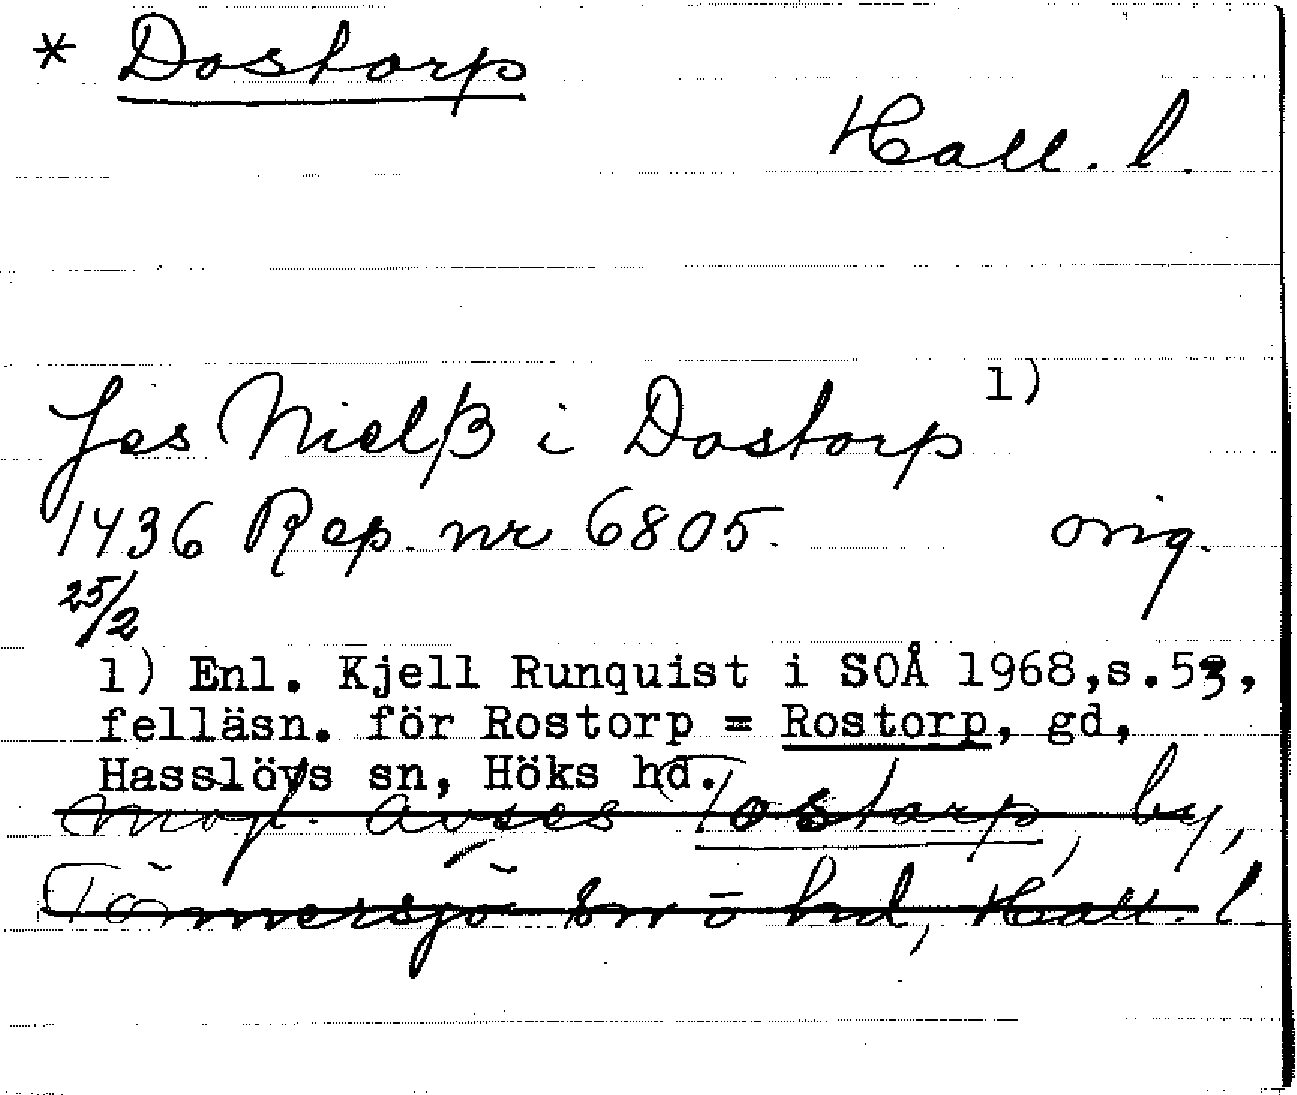 * Dostorp
Hall. l.
Jes Nielß i Dostorp 1)
1436 Rep. nr 6805. orig.
25/2
1) Enl. Kjell Runquist i SOÅ 1968,s.53,
felläsn. för Rostorp = Rostorp, gd,
Hasslövs sn, Höks hd.
Möjl. avses Tostarp, by,
Tönnersjö sn o hd, Hall. l.